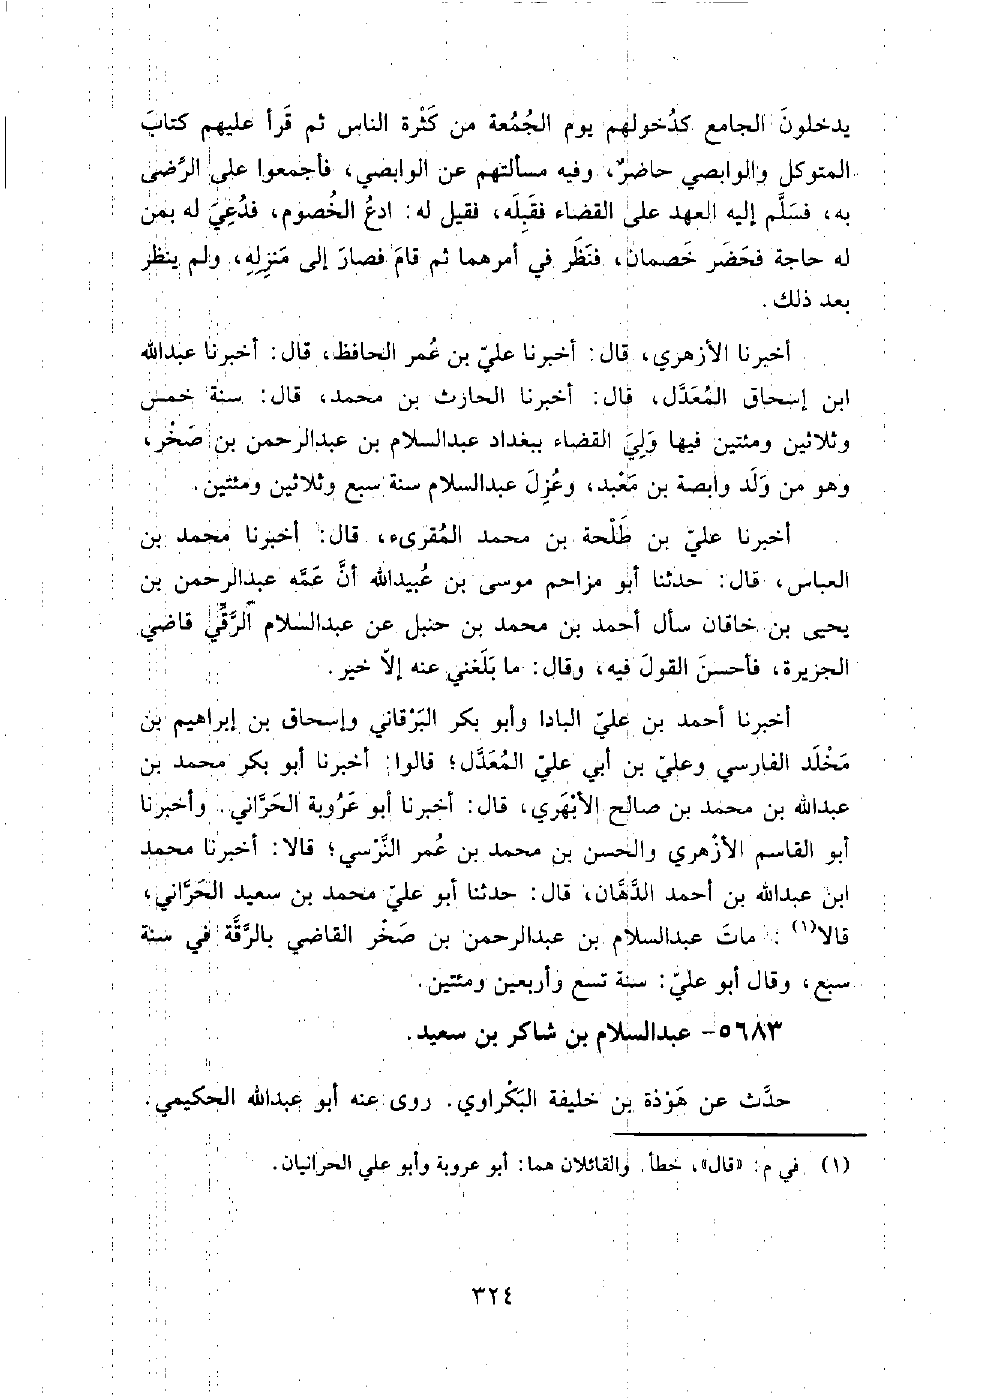 يدخلونَ الجامع كدُخولهم يوم الجُمُعة من كَثْرة الناس ثم قَرأ عليهم كتابَ
المتوكل والوابصي حاضرٌ، وفيه مسألتهم عن الوابصي، فأجمعوا على الرِّضى
به، فسَلَّم إليه العهد على القضاء فقَبِلَه، فقيل له: ادعُ الخُصوم، فدُعِيَ له بمن
له حاجة فحَضَر خَصمان، فنَظَر في أمرهما ثم قامَ فصارَ إلى مَنزِلِه، ولم ينظر
بعد ذلك.
أخبرنا الأزهري، قال: أخبرنا عليّ بن عُمر الحافظ، قال: أخبرنا عبدالله
ابن إسحاق المُعَدَّل، قال: أخبرنا الحارث بن محمد، قال: سنة خمس
وثلاثين ومئتين فيها وَلِيَ القضاء ببغداد عبدالسلام بن عبدالرحمن بن صَخْر،
وهو من وَلَد وابصة بن مَعْبد، وعُزِلَ عبدالسلام سنة سبع وثلاثين ومئتين.
أخبرنا عليّ بن طَلْحة بن محمد المُقرىء، قال: أخبرنا محمد بن
العباس، قال: حدثنا أبو مزاحم موسى بن عُبيدالله أنَّ عَمَّه عبدالرحمن بن
يحيى بن خاقان سأل أحمد بن محمد بن حنبل عن عبدالسلام الرَّقِّي قاضي
الجزيرة، فأحسنَ القولَ فيه، وقال: ما بَلَغني عنه إلاّ خير.
أخبرنا أحمد بن عليّ البادا وأبو بكر البَرْقاني وإسحاق بن إبراهيم بن
مَخْلَد الفارسي وعليّ بن أبي عليّ المُعَدَّل؛ قالوا: أخبرنا أبو بكر محمد بن
عبدالله بن محمد بن صالح الأبْهَري، قال: أخبرنا أبو عَرُوبة الحَرَّاني. وأخبرنا
أبو القاسم الأزْهري والحسن بن محمد بن عُمر النَّرْسي؛ قالا: أخبرنا محمد
ابن عبدالله بن أحمد الدَّهَّان، قال: حدثنا أبو عليّ محمد بن سعيد الحَرَّاني،
قالا(١): ماتَ عبدالسلام بن عبدالرحمن بن صَخْر القاضي بالرَّقَّة في سنة
سبع، وقال أبو عليّ: سنة تسع وأربعين ومئتين.
٥٦٨٣- عبدالسلام بن شاكر بن سعيد.
حدَّث عن هَوْذة بن خليفة البَكْراوي. روى عنه أبو عبدالله الحكيمي.
(١) في م: «قال»، خطأ. والقائلان هما: أبو عروبة وأبو علي الحرانيان.
٣٢٤